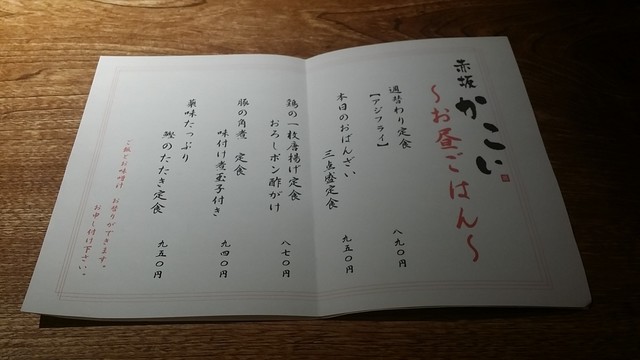 赤坂 かこい
～お昼ごはん～
週替わり定食
【アジフライ】
八九〇円
本日のおばんざい
三点盛定食
九五〇円
鶏の一枚唐揚げ定食
おろしポン酢がけ
八七〇円
豚の角煮 定食
味付け煮玉子付き
九四〇円
薬味たっぷり
鰹のたたき定食
九五〇円
ご飯とお味噌汁 お替りができます。
お申し付け下さい。